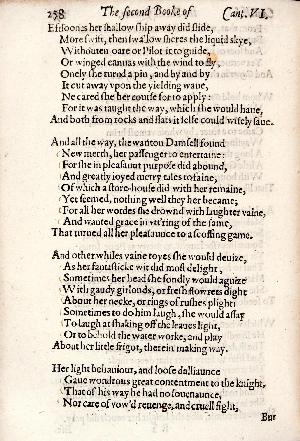 258 The second Booke of Cant. VI.
Eftsoones her shallow ship away did slide,
More swift, then swallow sheres the liquid skye,
Withouten oare or Pilot it to guide,
Or winged canuas with the wind to fly,
Onely she turnd a pin, and by and by
It cut away vpon the yielding waue,
Ne cared she her course for to apply:
For it was taught the way, which she would haue,
And both from rocks and flats it selfe could wisely saue.
And all the way, the wanton Damsell found
New merth, her passenger to entertaine:
For she in pleasaunt purpose did abound,
And greatly ioyed merry tales to faine,
Of which a store-house did with her remaine,
Yet seemed, nothing well they her became;
For all her wordes she drownd with laughter vaine,
And wanted grace in vtt'ring of the same,
That turned all her pleasaunce to a scoffing game.
And other whiles vaine toyes she would deuize,
As her fantasticke wit did most delight,
Sometimes her head she fondly would aguize
With gaudy girlonds, or fresh flowrets dight
About her necke, or rings of rushes plight;
Sometimes to do him laugh, she would assay
To laugh at shaking off the leaues light,
Or to behold the water worke, and play
About her little frigot, therein making way.
Her light behauiour, and loose dalliaunce
Gaue wondrous great contentment to the knight,
That of his way he had no souenaunce,
Nor care of vow'd reuenge, and cruell fight,
But